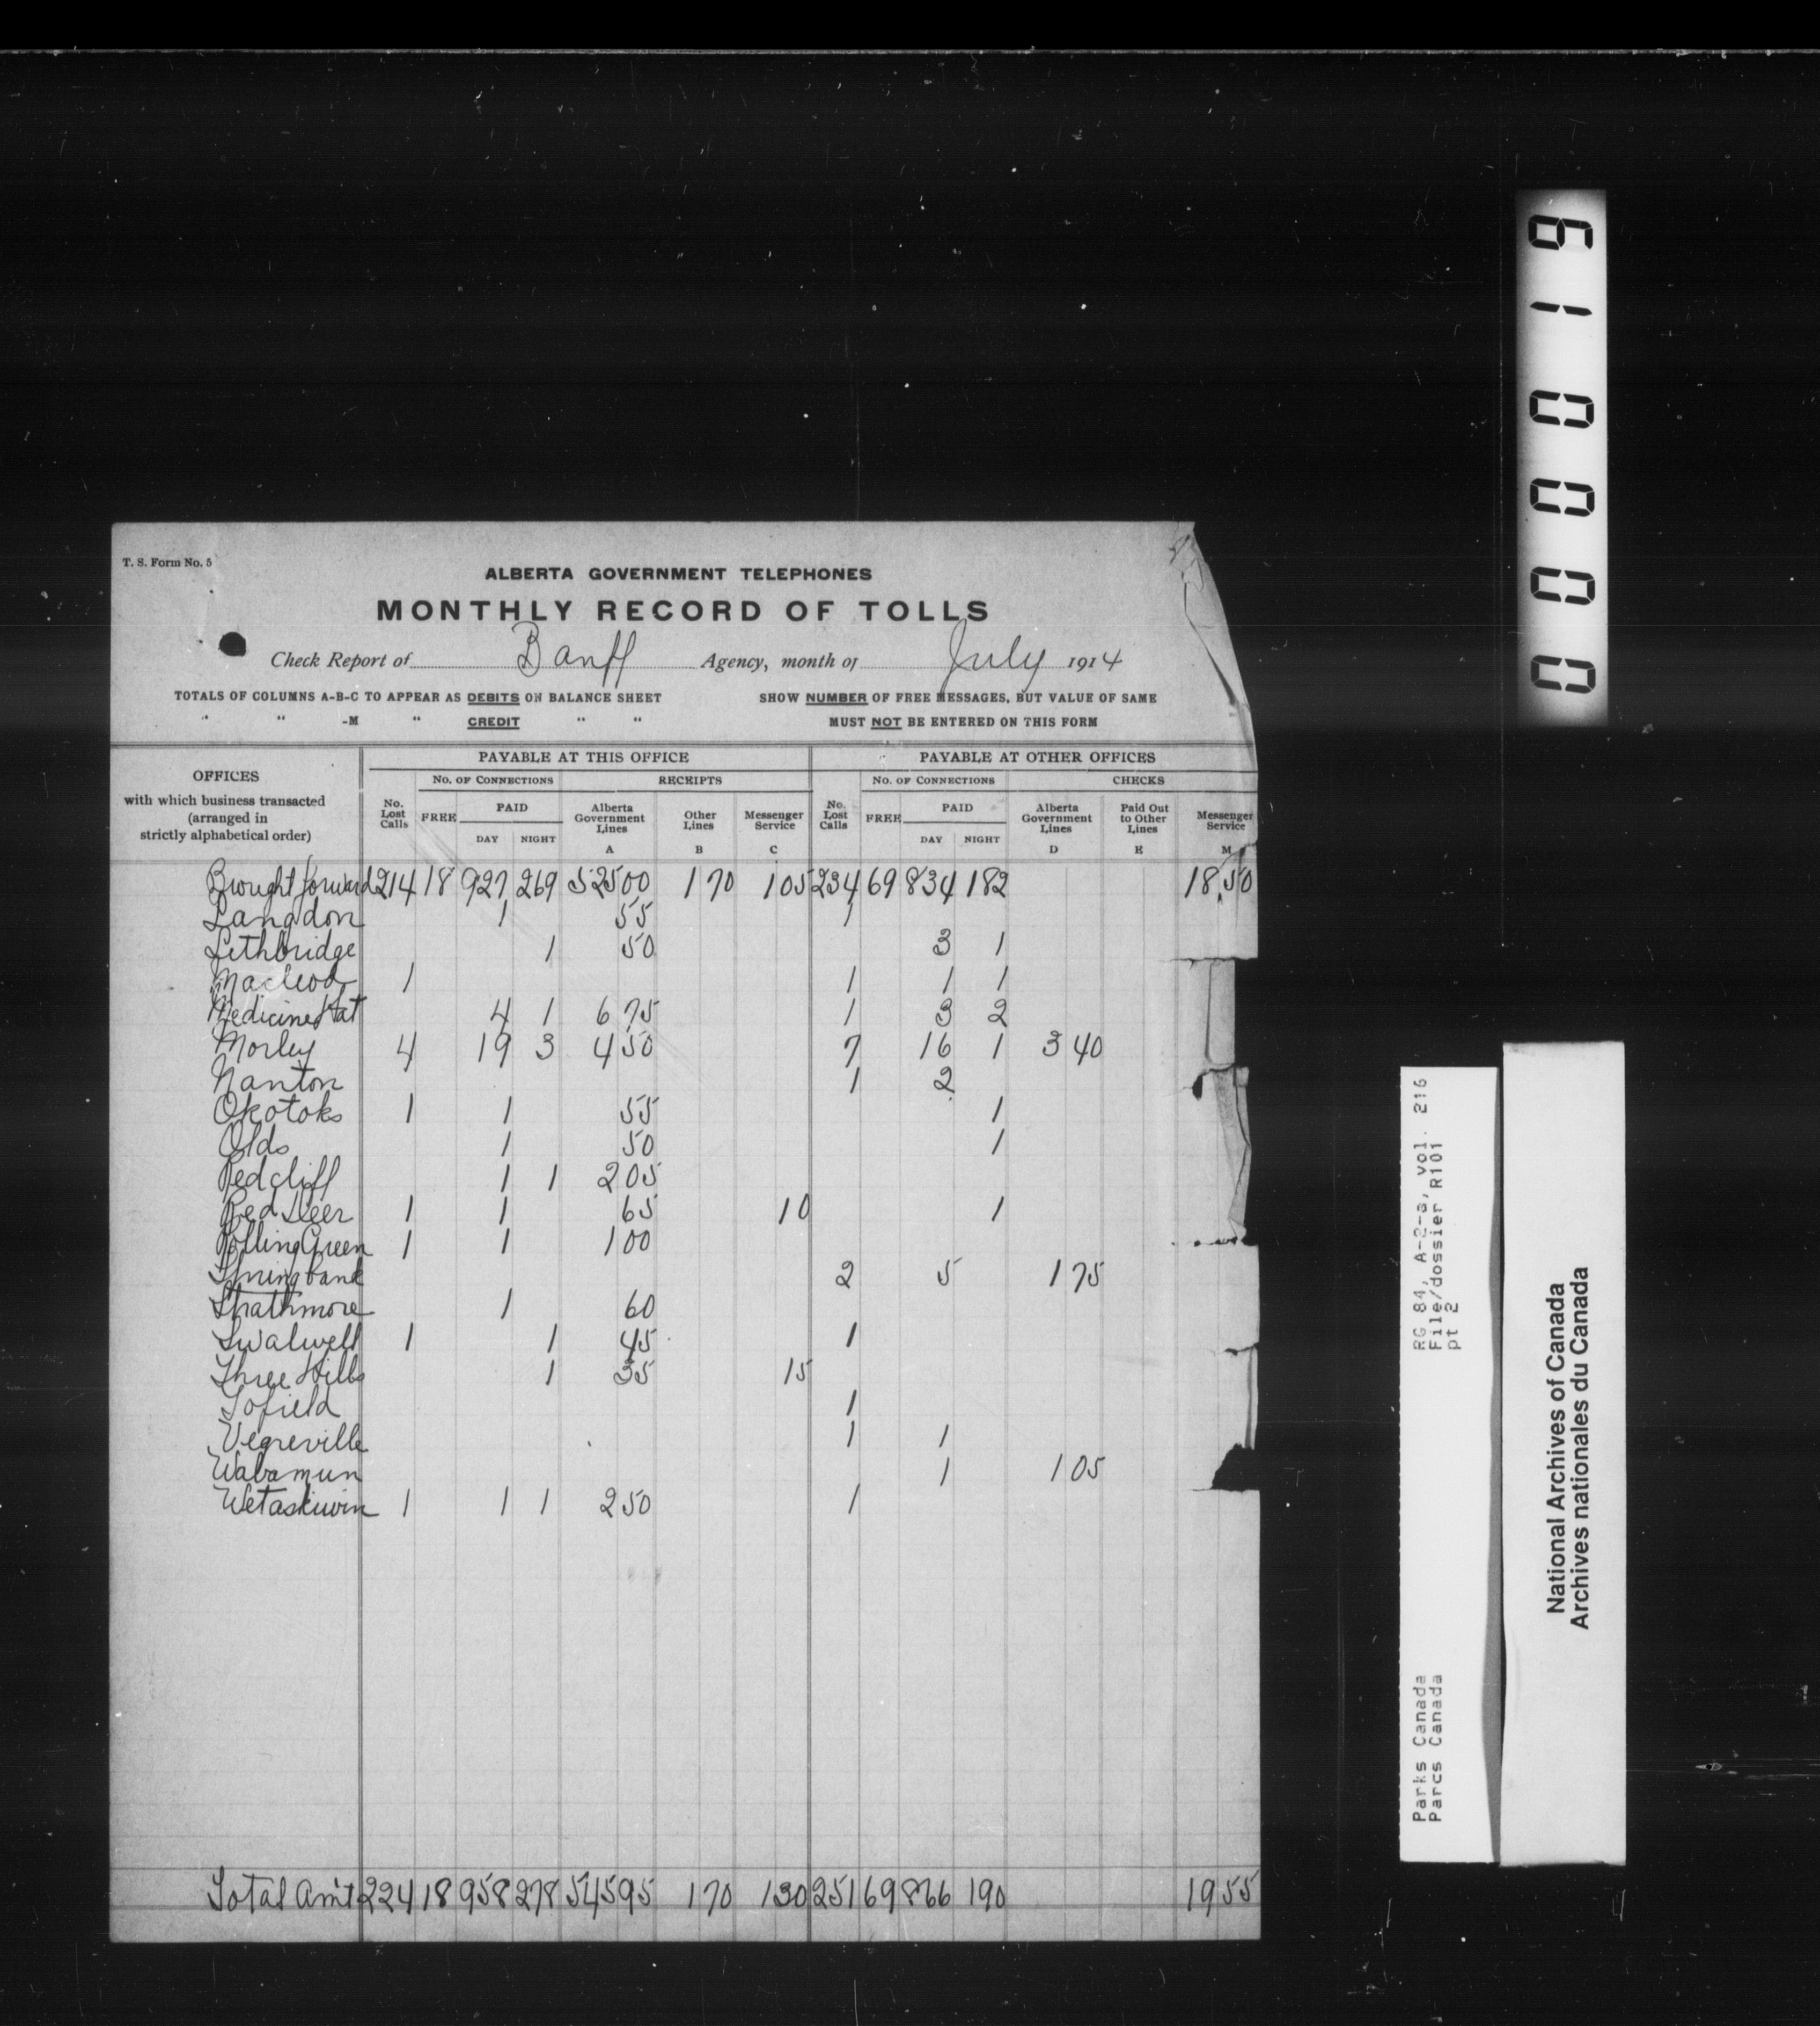 T. S. Form No. 5
ALBERTA GOVERNMENT TELEPHONES
MONTHLY RECORD OF TOLLS
Check Report of Banff Agency, month of July 1914
TOTALS OF COLUMNS A-B-C TO APPEAR AS DEBITS ON BALANCE SHEET
" " -M " CREDIT " "
SHOW NUMBER OF FREE MESSAGES, BUT VALUE OF SAME
MUST NOT BE ENTERED ON THIS FORM
OFFICES
with which business transacted
(arranged in
strictly alphabetical order)
PAYABLE AT THIS OFFICE
No. Lost Calls
No. OF CONNECTIONS
FREE
PAID
DAY NIGHT
RECEIPTS
Alberta Government Lines A
Other Lines B
Messenger Service C
PAYABLE AT OTHER OFFICES
No. Lost Calls
No. OF CONNECTIONS
FREE
PAID
DAY NIGHT
CHECKS
Alberta Government Lines D
Paid Out to Other Lines E
Messenger Service M
Brought forward 214 18 927 269 525 00 1 70 1 05 234 69 834 182 18.50
Langdon 1 55 1
Lethbridge 1 50 3 1
Macleod 1 1 1 1
Medicine Hat 4 1 6 75 1 3 2
Morley 4 19 3 4 50 7 16 1 3 40
Nanton 1 2
Okotoks 1 1 55 1
Olds 1 50 1
Redcliff 1 1 2 05
Red Deer 1 1 65 10 1
Rolling Green 1 1 1 00
Springbank 2 5 1 75
Strathmore 1 60
Swalwell 1 1 45 1
Three Hills 1 35 15
Tofield 1
Vegreville 1 1
Wabamun 1 1 05
Wetaskiwin 1 1 1 2 50 1
Total Amt 224 18 958 278 545 95 1 70 1 30 251 69 866 190 19 55
000019
RG 84, A-2-a, vol. 216
File/dossier R101
pt 2
Parks Canada
Parcs Canada
National Archives of Canada
Archives nationales du Canada